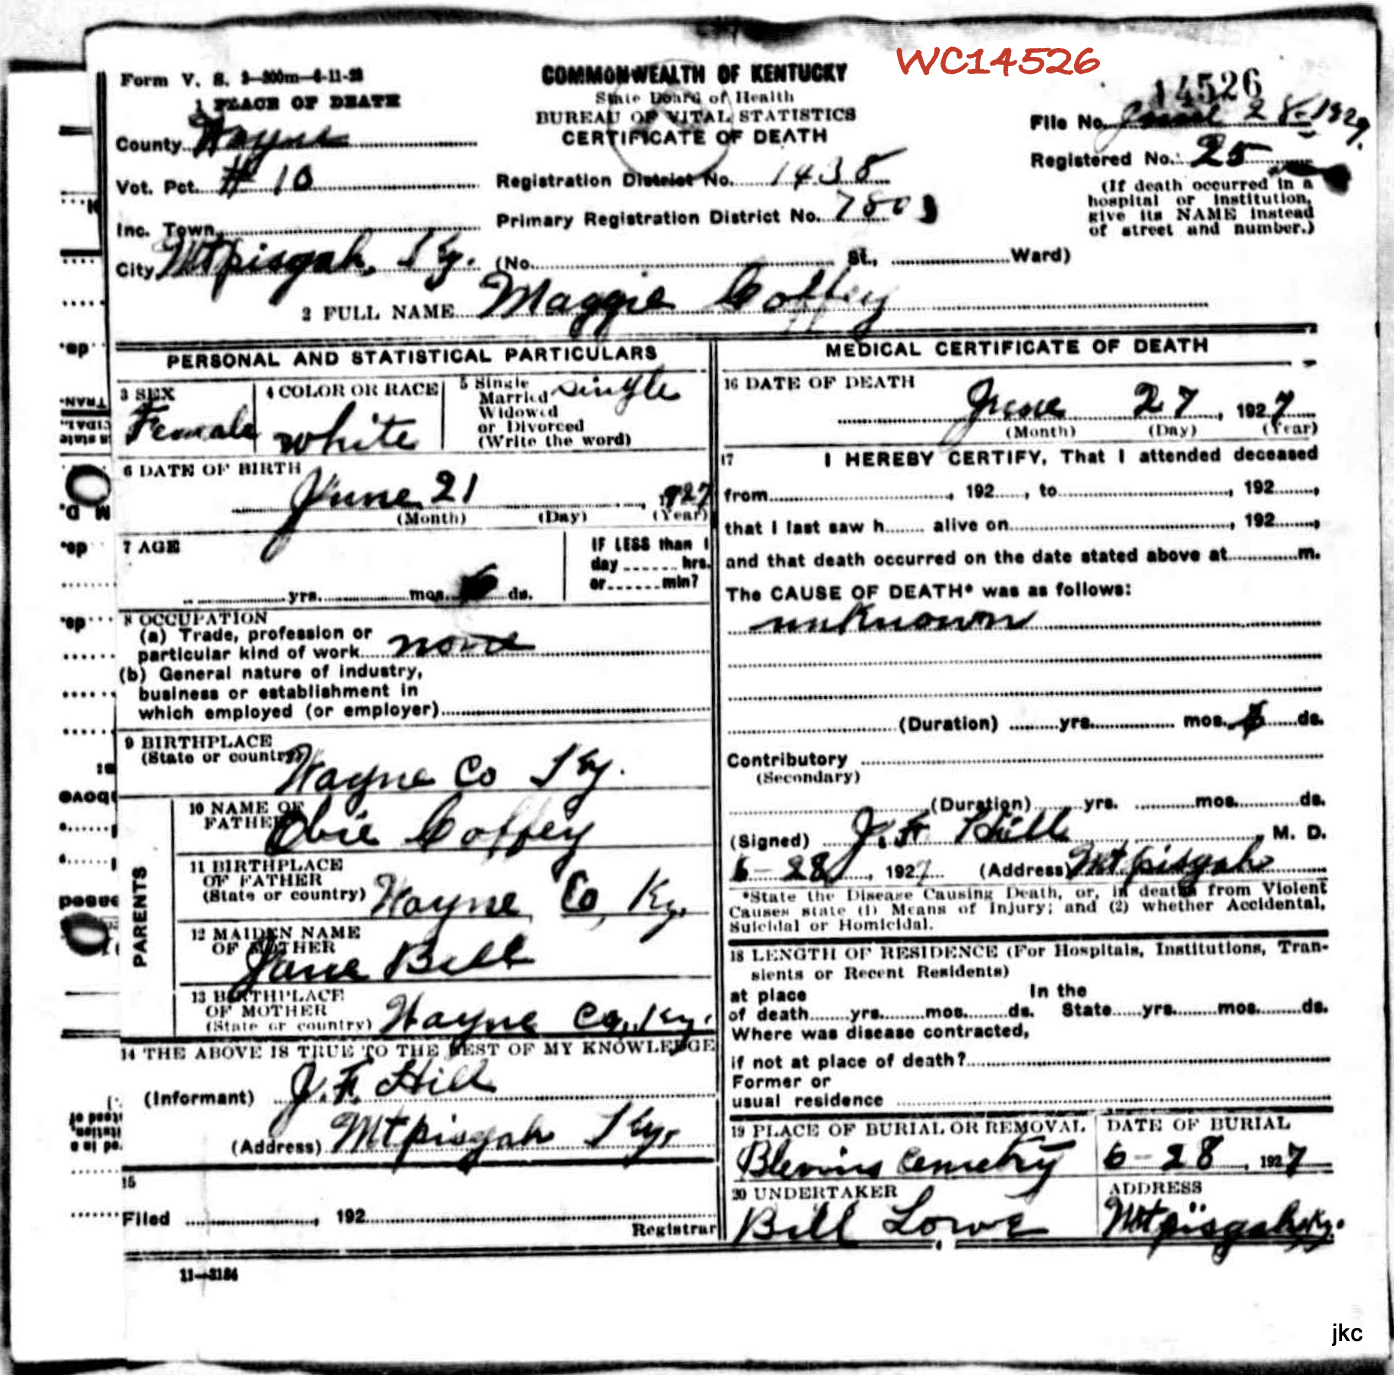 WC14526
Form V. S. 3-300m-6-11-28
COMMONWEALTH OF KENTUCKY
14526
1 PLACE OF DEATH
State Board of Health
BUREAU OF VITAL STATISTICS
CERTIFICATE OF DEATH
File No. June 28-1929.
County Wayne
Registered No. 25
Vot. Pct. # 10
Registration District No. 1438
(If death occurred in a
hospital or institution,
give its NAME instead
of street and number.)
Inc. Town
Primary Registration District No. 7803
City Mt pisgah, Ky. (No. St., Ward)
2 FULL NAME Maggie Coffey
PERSONAL AND STATISTICAL PARTICULARS
3 SEX
Female
4 COLOR OR RACE
white
5 Single
Married
Widowed
or Divorced
(Write the word)
single
6 DATE OF BIRTH
June 21, 1927
(Month) (Day) (Year)
7 AGE
yrs. mos. 6 ds.
IF LESS than 1
day hrs.
or min?
8 OCCUPATION
(a) Trade, profession or
particular kind of work none
(b) General nature of industry,
business or establishment in
which employed (or employer)
9 BIRTHPLACE
(State or country)
Wayne Co Ky.
PARENTS
10 NAME OF
FATHER
Obie Coffey
11 BIRTHPLACE
OF FATHER
(State or country) Wayne Co, Ky,
12 MAIDEN NAME
OF MOTHER
Jane Bell
13 BIRTHPLACE
OF MOTHER
(State or country) Wayne Co, Ky.
14 THE ABOVE IS TRUE TO THE BEST OF MY KNOWLEDGE
(Informant) J. F. Hill
(Address) Mt pisgah Ky,
15
Filed , 192
Registrar
11-3184
MEDICAL CERTIFICATE OF DEATH
16 DATE OF DEATH
June 27, 1927
(Month) (Day) (Year)
17 I HEREBY CERTIFY, That I attended deceased
from , 192 , to , 192 ,
that I last saw h alive on , 192 ,
and that death occurred on the date stated above at m.
The CAUSE OF DEATH* was as follows:
unknown
(Duration) yrs. mos. 6 ds.
Contributory
(Secondary)
(Duration) yrs. mos. ds.
(Signed) J. F Hill, M. D.
6-28, 1927 (Address) Mt pisgah
*State the Disease Causing Death, or, in deaths from Violent
Causes state (1) Means of Injury; and (2) whether Accidental,
Suicidal or Homicidal.
18 LENGTH OF RESIDENCE (For Hospitals, Institutions, Tran-
sients or Recent Residents)
at place In the
of death yrs. mos. ds. State yrs. mos. ds.
Where was disease contracted,
if not at place of death?
Former or
usual residence
19 PLACE OF BURIAL OR REMOVAL
Blevins Cemetry
DATE OF BURIAL
6-28, 1927
20 UNDERTAKER
Bill Lowe
ADDRESS
Mt pisgah, Ky.
jkc